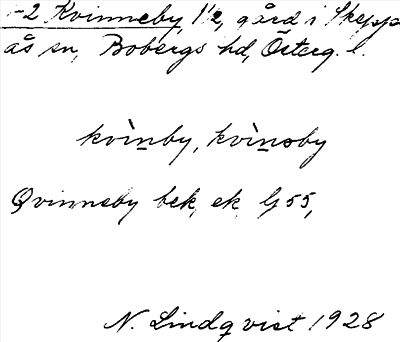 1-2 Kvinneby, 1 1/2, gård i Skepp
ås sn, Bobergs hd, Österg. l.
kvìnby, kvìnəby
Qvinneby bek, ek G 55,
N. Lindqvist 1928